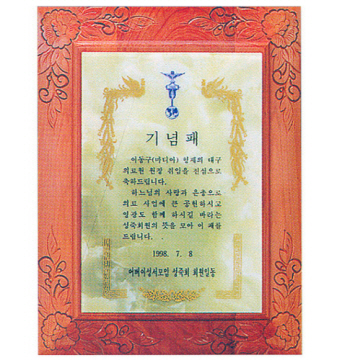 기념패
이동구(마티아) 형제의 대구
의료원 원장 취임을 진심으로
축하드립니다.
하느님의 사랑과 은총으로
의료 사업에 큰 공헌하시고
영광도 함께 하시길 바라는
성죽회원의 뜻을 모아 이 패를
드립니다.
1998. 7. 8
성죽회 회원일동